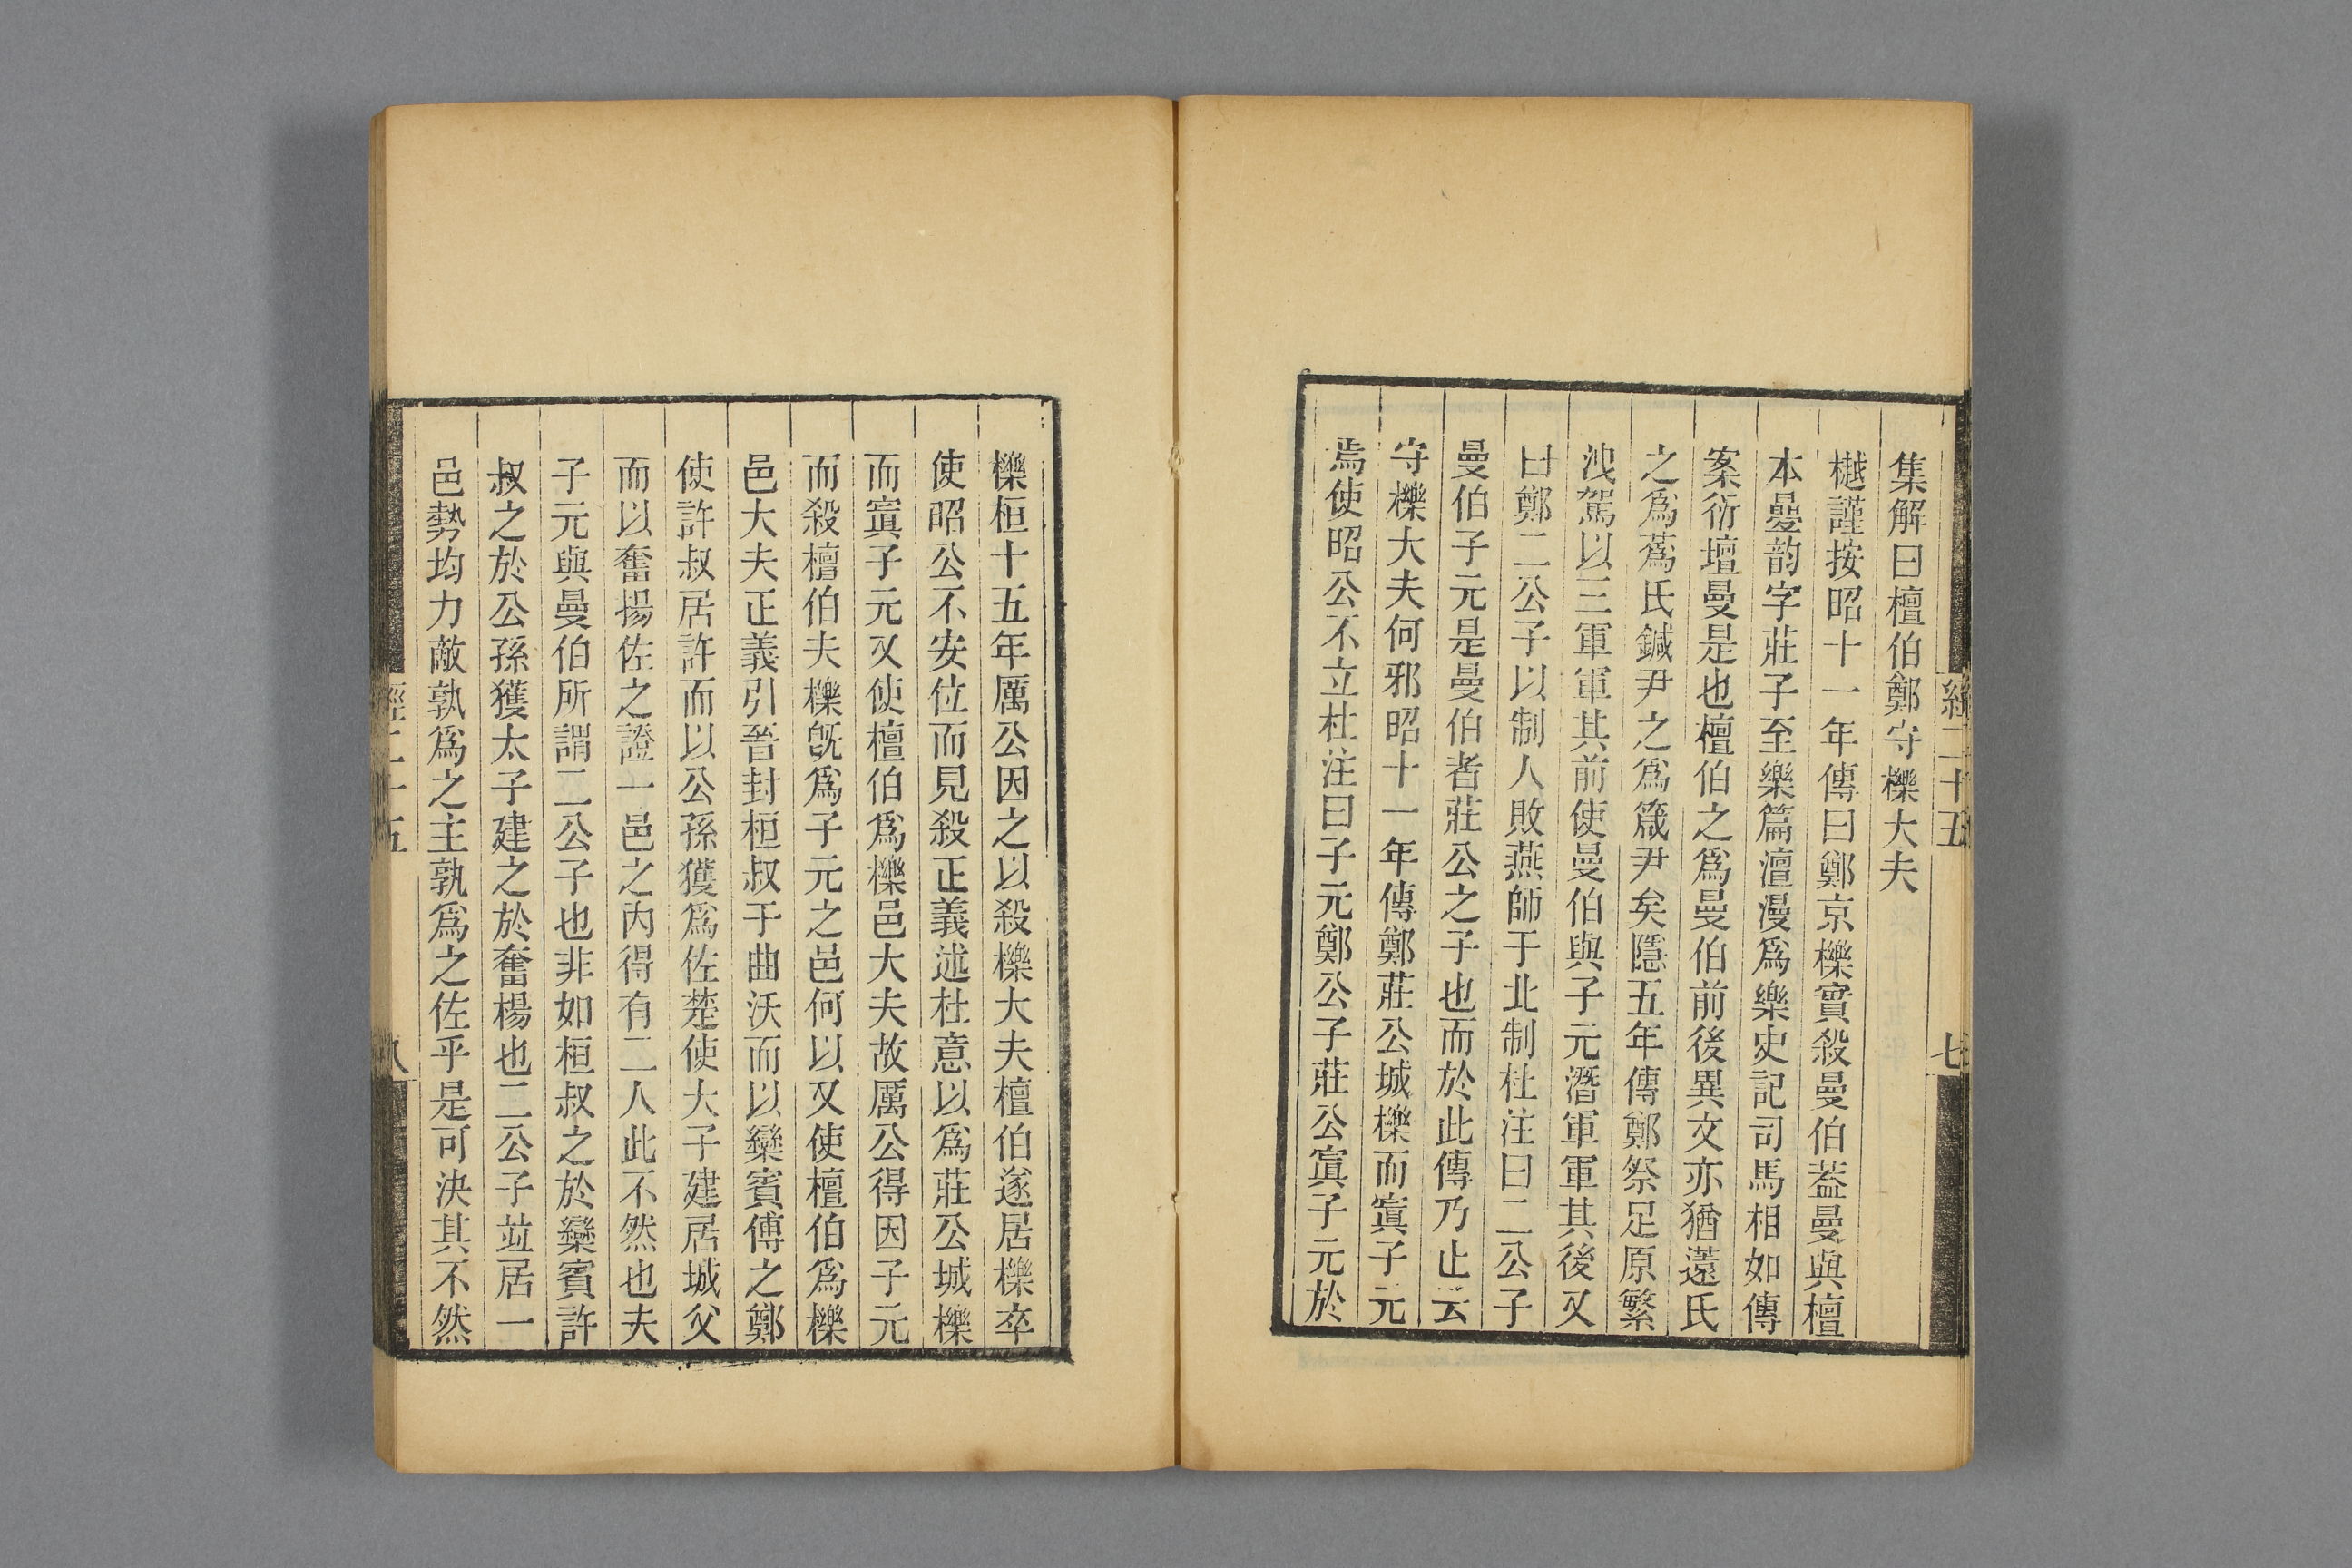 經二十五
七
集解曰檀伯鄭守櫟大夫
樾謹按昭十一年傳曰鄭京櫟實殺曼伯蓋曼與檀
本曡韵字莊子至樂篇澶漫爲樂史記司馬相如傳
案衍壇曼是也檀伯之爲曼伯前後異文亦猶薳氏
之爲蔿氏鍼尹之爲箴尹矣隱五年傳鄭祭足原繁
洩駕以三軍軍其前使曼伯與子元潛軍軍其後又
曰鄭二公子以制人敗燕師于北制杜注曰二公子
曼伯子元是曼伯者莊公之子也而於此傳乃止云
守櫟大夫何邪昭十一年傳鄭莊公城櫟而寘子元
焉使昭公不立杜注曰子元鄭公子莊公寘子元於
櫟桓十五年厲公因之以殺櫟大夫檀伯遂居櫟卒
使昭公不安位而見殺正義述杜意以爲莊公城櫟
而寘子元又使檀伯爲櫟邑大夫故厲公得因子元
而殺檀伯夫櫟旣爲子元之邑何以又使檀伯爲櫟
邑大夫正義引晉封桓叔于曲沃而以欒賓傅之鄭
使許叔居許而以公孫獲爲佐楚使大子建居城父
而以奮揚佐之證一邑之內得有二人此不然也夫
子元與曼伯所謂二公子也非如桓叔之於欒賓許
叔之於公孫獲太子建之於奮楊也二公子竝居一
邑勢均力敵孰爲之主孰爲之佐乎是可決其不然
經二十五
八